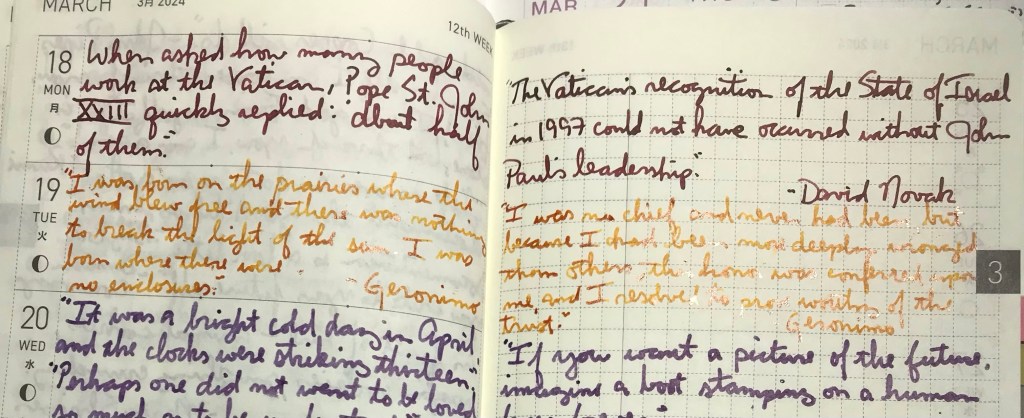 MARCH 3月 2024
12th WEEK
18 MON 月
When asked how many people
work at the Vatican, Pope St. John
XXIII quickly replied: about half
of them."
19 TUE
"I was born on the prairies where the
wind blew free and there was nothing
to break the light of the sun. I was
born where there were
no enclosures."
- Geronimo
20 WED
"It was a bright cold day in April
and the clocks were striking thirteen."
"Perhaps one did not want to be loved
so much as to be understood."
MAR
"The Vatican's recognition of the State of Israel
in 1997 could not have occurred without John
Paul's leadership."
- David Novak
"I was no chief and never had been, but
because I had been more deeply wronged
than others, this honor was conferred upon
me, and I resolved to prove worthy of the
trust."
Geronimo
3
"If you want a picture of the future,
imagine a boot stamping on a human